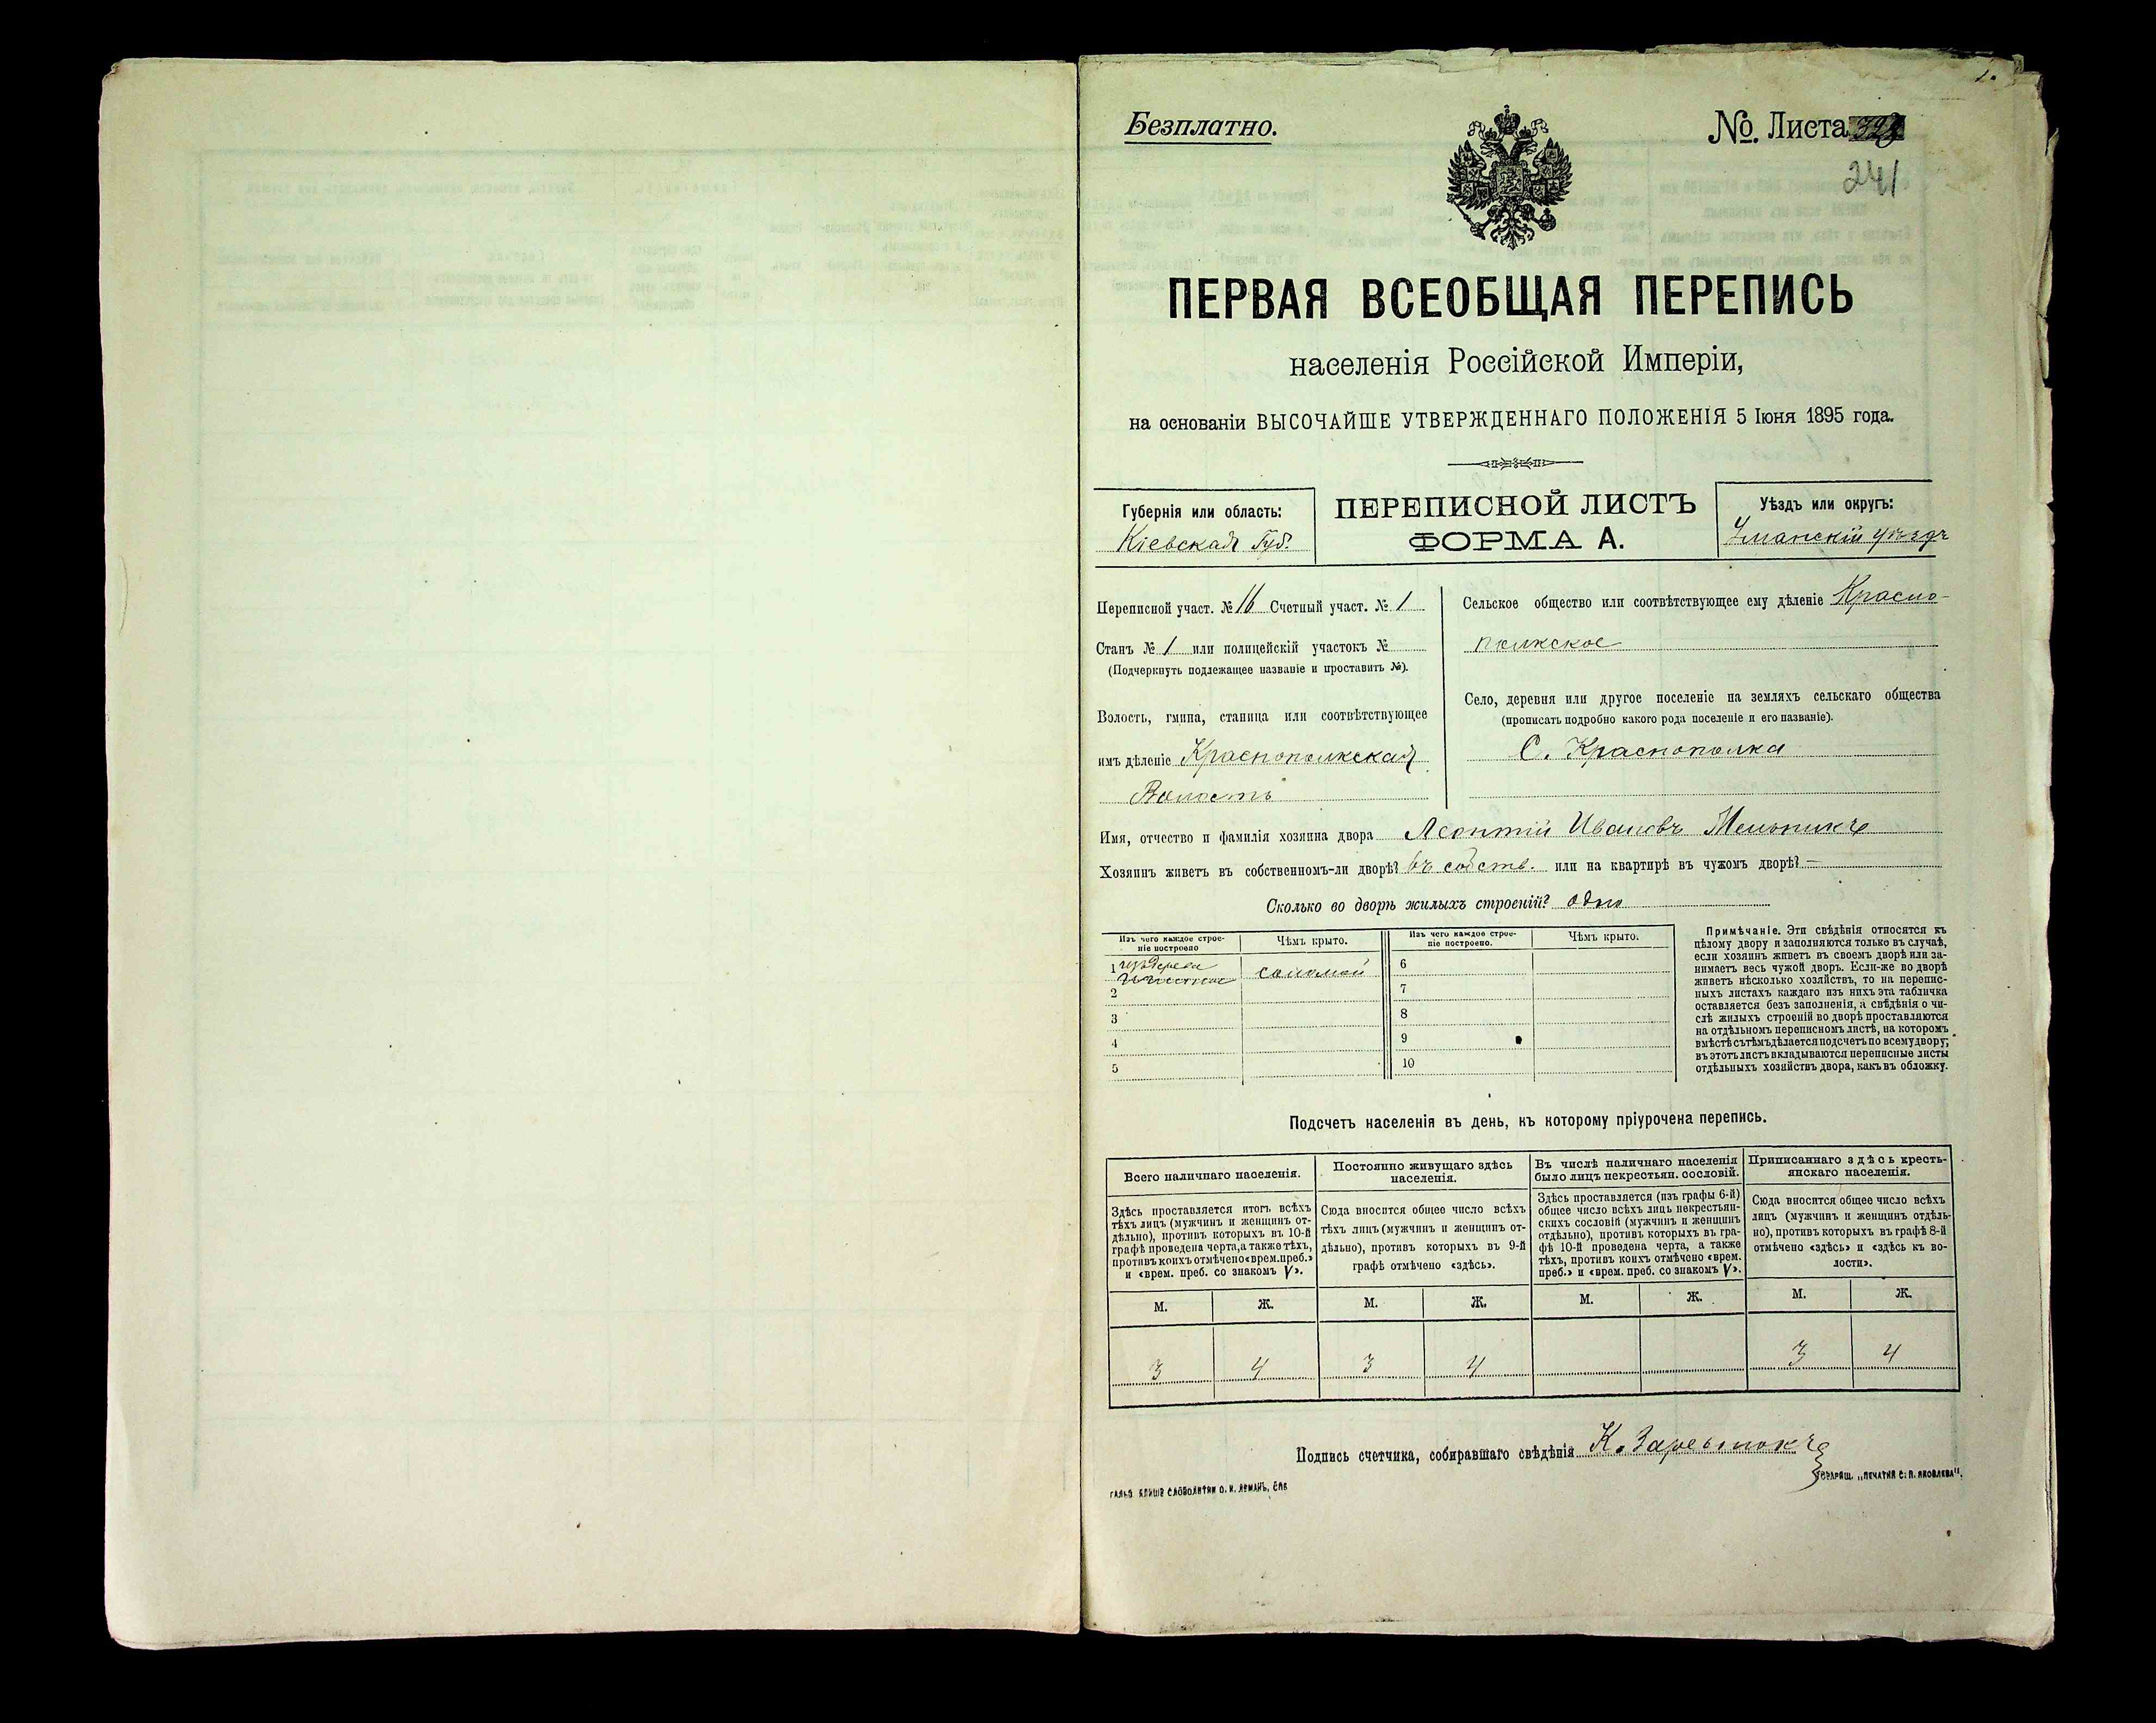 Безплатно.
№. Листа
241
ПЕРВАЯ ВСЕОБЩАЯ ПЕРЕПИСЬ
населенія Россійской Имперіи,
на основаніи ВЫСОЧАЙШЕ УТВЕРЖДЕННАГО ПОЛОЖЕНІЯ 5 Іюня 1895 года.
Губернія или область:
Кіевская Губ.
ПЕРЕПИСНОЙ ЛИСТЪ
ФОРМА А.
Уѣздъ или округъ:
Уманскій уѣздъ
Переписной участ. № 16 Счетный участ. № 1
Станъ № 1 или полицейскій участокъ №
(Подчеркнуть подлежащее названіе и проставить №).
Волость, гмина, станица или соотвѣтствующее
имъ дѣленіе Краснополкская
Волость
Сельское общество или соотвѣтствующее ему дѣленіе Красно-
полкское
Село, деревня или другое поселеніе на земляхъ сельскаго общества
(прописать подробно какого рода поселеніе и его названіе).
С. Краснополка
Имя, отчество и фамилія хозяина двора Леонтій Ивановъ Мельникъ
Хозяинъ живетъ въ собственномъ-ли дворѣ? въ собств. или на квартирѣ въ чужомъ дворѣ? —
Сколько во дворѣ жилыхъ строеній? одно
Изъ чего каждое строе-
ніе построено
Чѣмъ крыто.
Изъ чего каждое строе-
ніе построено.
Чѣмъ крыто.
1 изъ дерева
соломой
2
3
4
5
6
7
8
9
10
Примѣчаніе. Эти свѣдѣнія относятся къ
цѣлому двору и заполняются только въ случаѣ,
если хозяинъ живетъ въ своемъ дворѣ или за-
нимаетъ весь чужой дворъ. Если-же во дворѣ
живетъ нѣсколько хозяйствъ, то на перепис-
ныхъ листахъ каждаго изъ нихъ эта табличка
оставляется безъ заполненія, а свѣдѣнія о чи-
слѣ жилыхъ строеній во дворѣ проставляются
на отдѣльномъ переписномъ листѣ, на которомъ
вмѣстѣ съ тѣмъ дѣлается подсчетъ по всему двору;
въ этотъ листъ вкладываются переписные листы
отдѣльныхъ хозяйствъ двора, какъ въ обложку.
Подсчетъ населенія въ день, къ которому пріурочена перепись.
Всего наличнаго населенія.
Здѣсь проставляется итогъ всѣхъ
тѣхъ лицъ (мужчинъ и женщинъ от-
дѣльно), противъ которыхъ въ 10-й
графѣ проведена черта, а также тѣхъ,
противъ коихъ отмѣчено «врем. преб.»
и «врем. преб. со знакомъ V».
Постоянно живущаго здѣсь
населенія.
Сюда вносится общее число всѣхъ
тѣхъ лицъ (мужчинъ и женщинъ от-
дѣльно), противъ которыхъ въ 9-й
графѣ отмѣчено «здѣсь».
Въ числѣ наличнаго населенія
было лицъ некрестьян. сословій.
Здѣсь проставляется (изъ графы 6-й)
общее число всѣхъ лицъ некрестьян-
скихъ сословій (мужчинъ и женщинъ
отдѣльно), противъ которыхъ въ гра-
фѣ 10-й проведена черта, а также
тѣхъ, противъ коихъ отмѣчено «врем.
преб.» и «врем. преб. со знакомъ V».
Приписаннаго здѣсь кресть-
янскаго населенія.
Сюда вносится общее число всѣхъ
лицъ (мужчинъ и женщинъ отдѣль-
но), противъ которыхъ въ графѣ 8-й
отмѣчено «здѣсь» и «здѣсь къ во-
лости».
М. Ж. М. Ж. М. Ж. М. Ж.
3 4 3 4 3 4
Подпись счетчика, собиравшаго свѣдѣнія К.
ГАЛЬВ. КЛИШЕ СЛОВОЛИТНИ О. И. ЛЕМАНЪ, СПБ
ТОВАРИЩ. „ПЕЧАТНЯ С. П. ЯКОВЛЕВА".